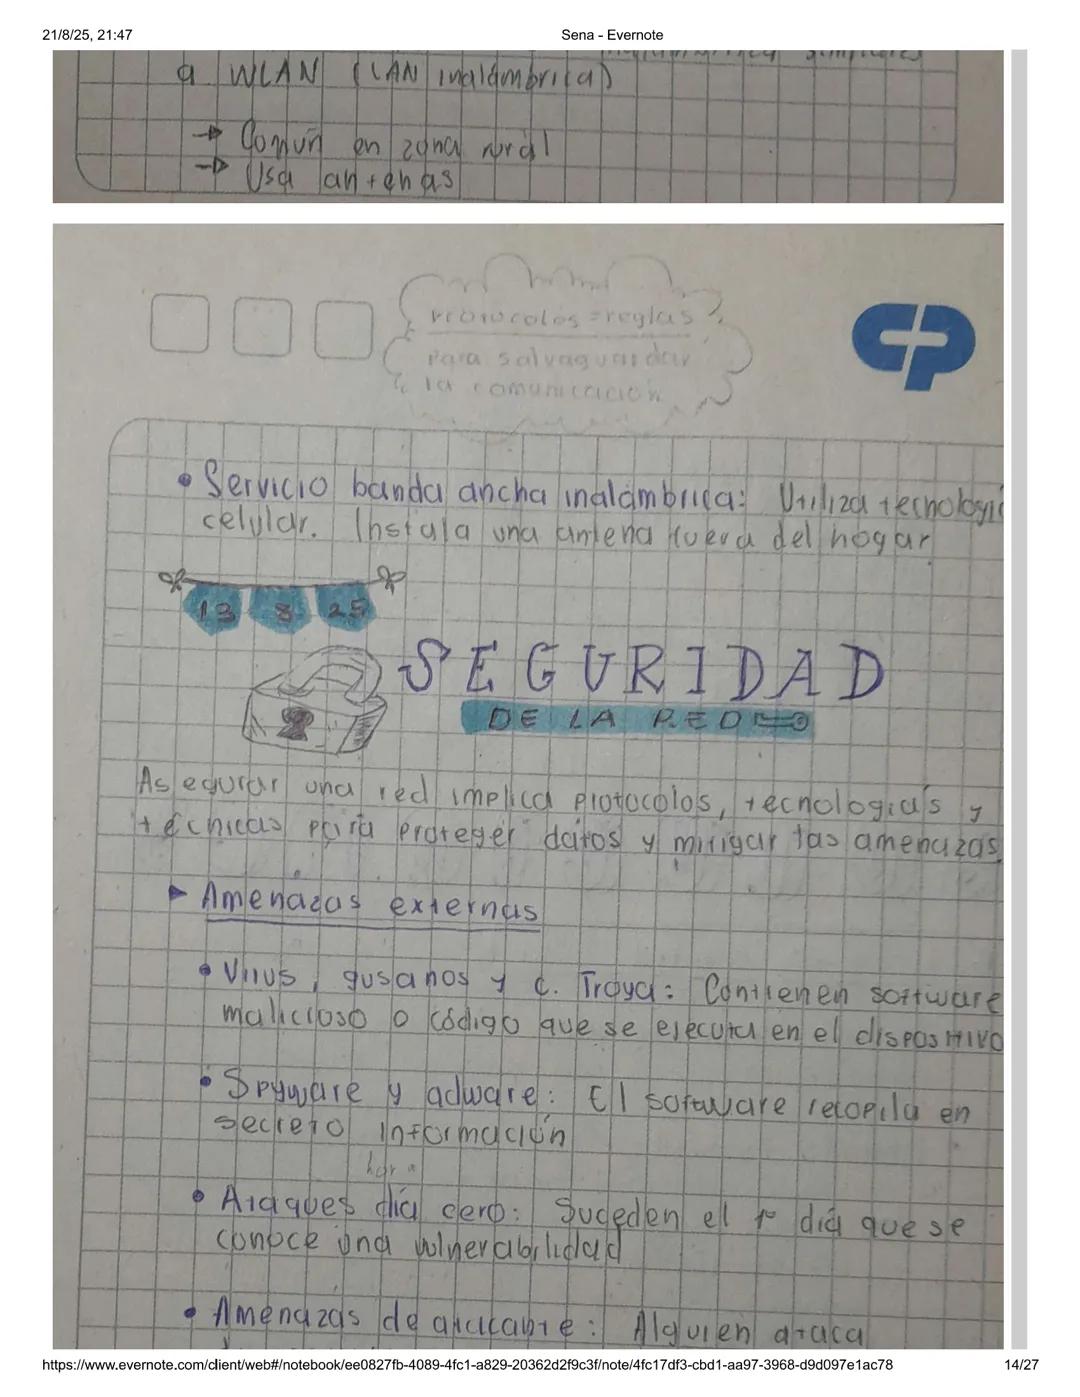 21/8/25, 21:47
Sena - Evernote
a WLAN (LAN inalámbrica)
→ Común en zona rural
→ Usa antenas
Protocolos = reglas
para salvaguardar
la comunicación
CP
• Servicio banda ancha inalámbrica: Utiliza tecnologí
celular. Instala una antena fuera del hogar
13 8 25
SEGURIDAD
DE LA RED
Asegurar una red implica protocolos, tecnologías y
técnicas para proteger datos y mitigar las amenazas
► Amenazas externas
• Virus, gusanos y c. Troya: Contienen software
malicioso o código que se ejecuta en el dispositivo
• Spyware y adware: El software recopila en
secreto información
hora
• Ataques día cero: Suceden el 1° día que se
conoce una vulnerabilidad
• Amenazas de atacante: Alguien ataca
https://www.evernote.com/client/web#/notebook/ee0827fb-4089-4fc1-a829-20362d2f9c3f/note/4fc17df3-cbd1-aa97-3968-d9d097e1ac78
14/27